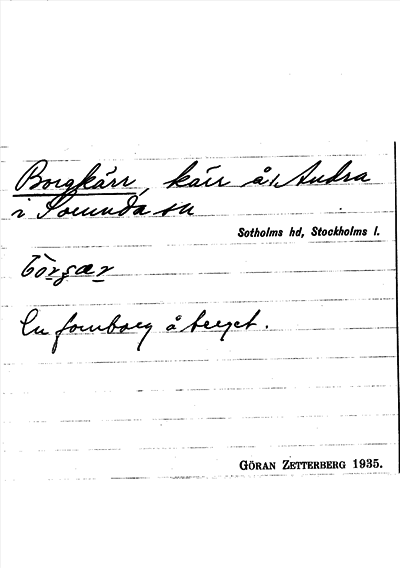 Borgkärr, kärr å Andra
i Sorunda sn
Sotholms hd, Stockholms l.
En fornborg å berget.
GÖRAN ZETTERBERG 1935.